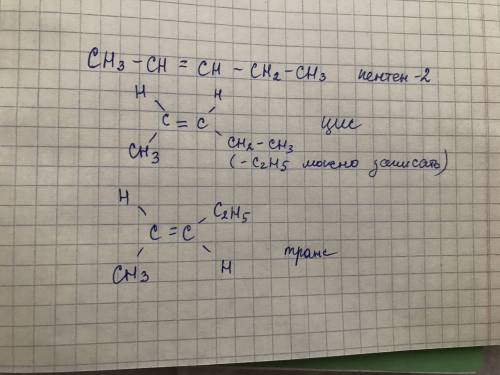 CH3 – CH = CH – CH2 – CH3 пентен-2
H H
C = C цис
CH3 CH2 – CH3
(– C2H5 можно записать)
H C2H5
C = C
CH3 H транс